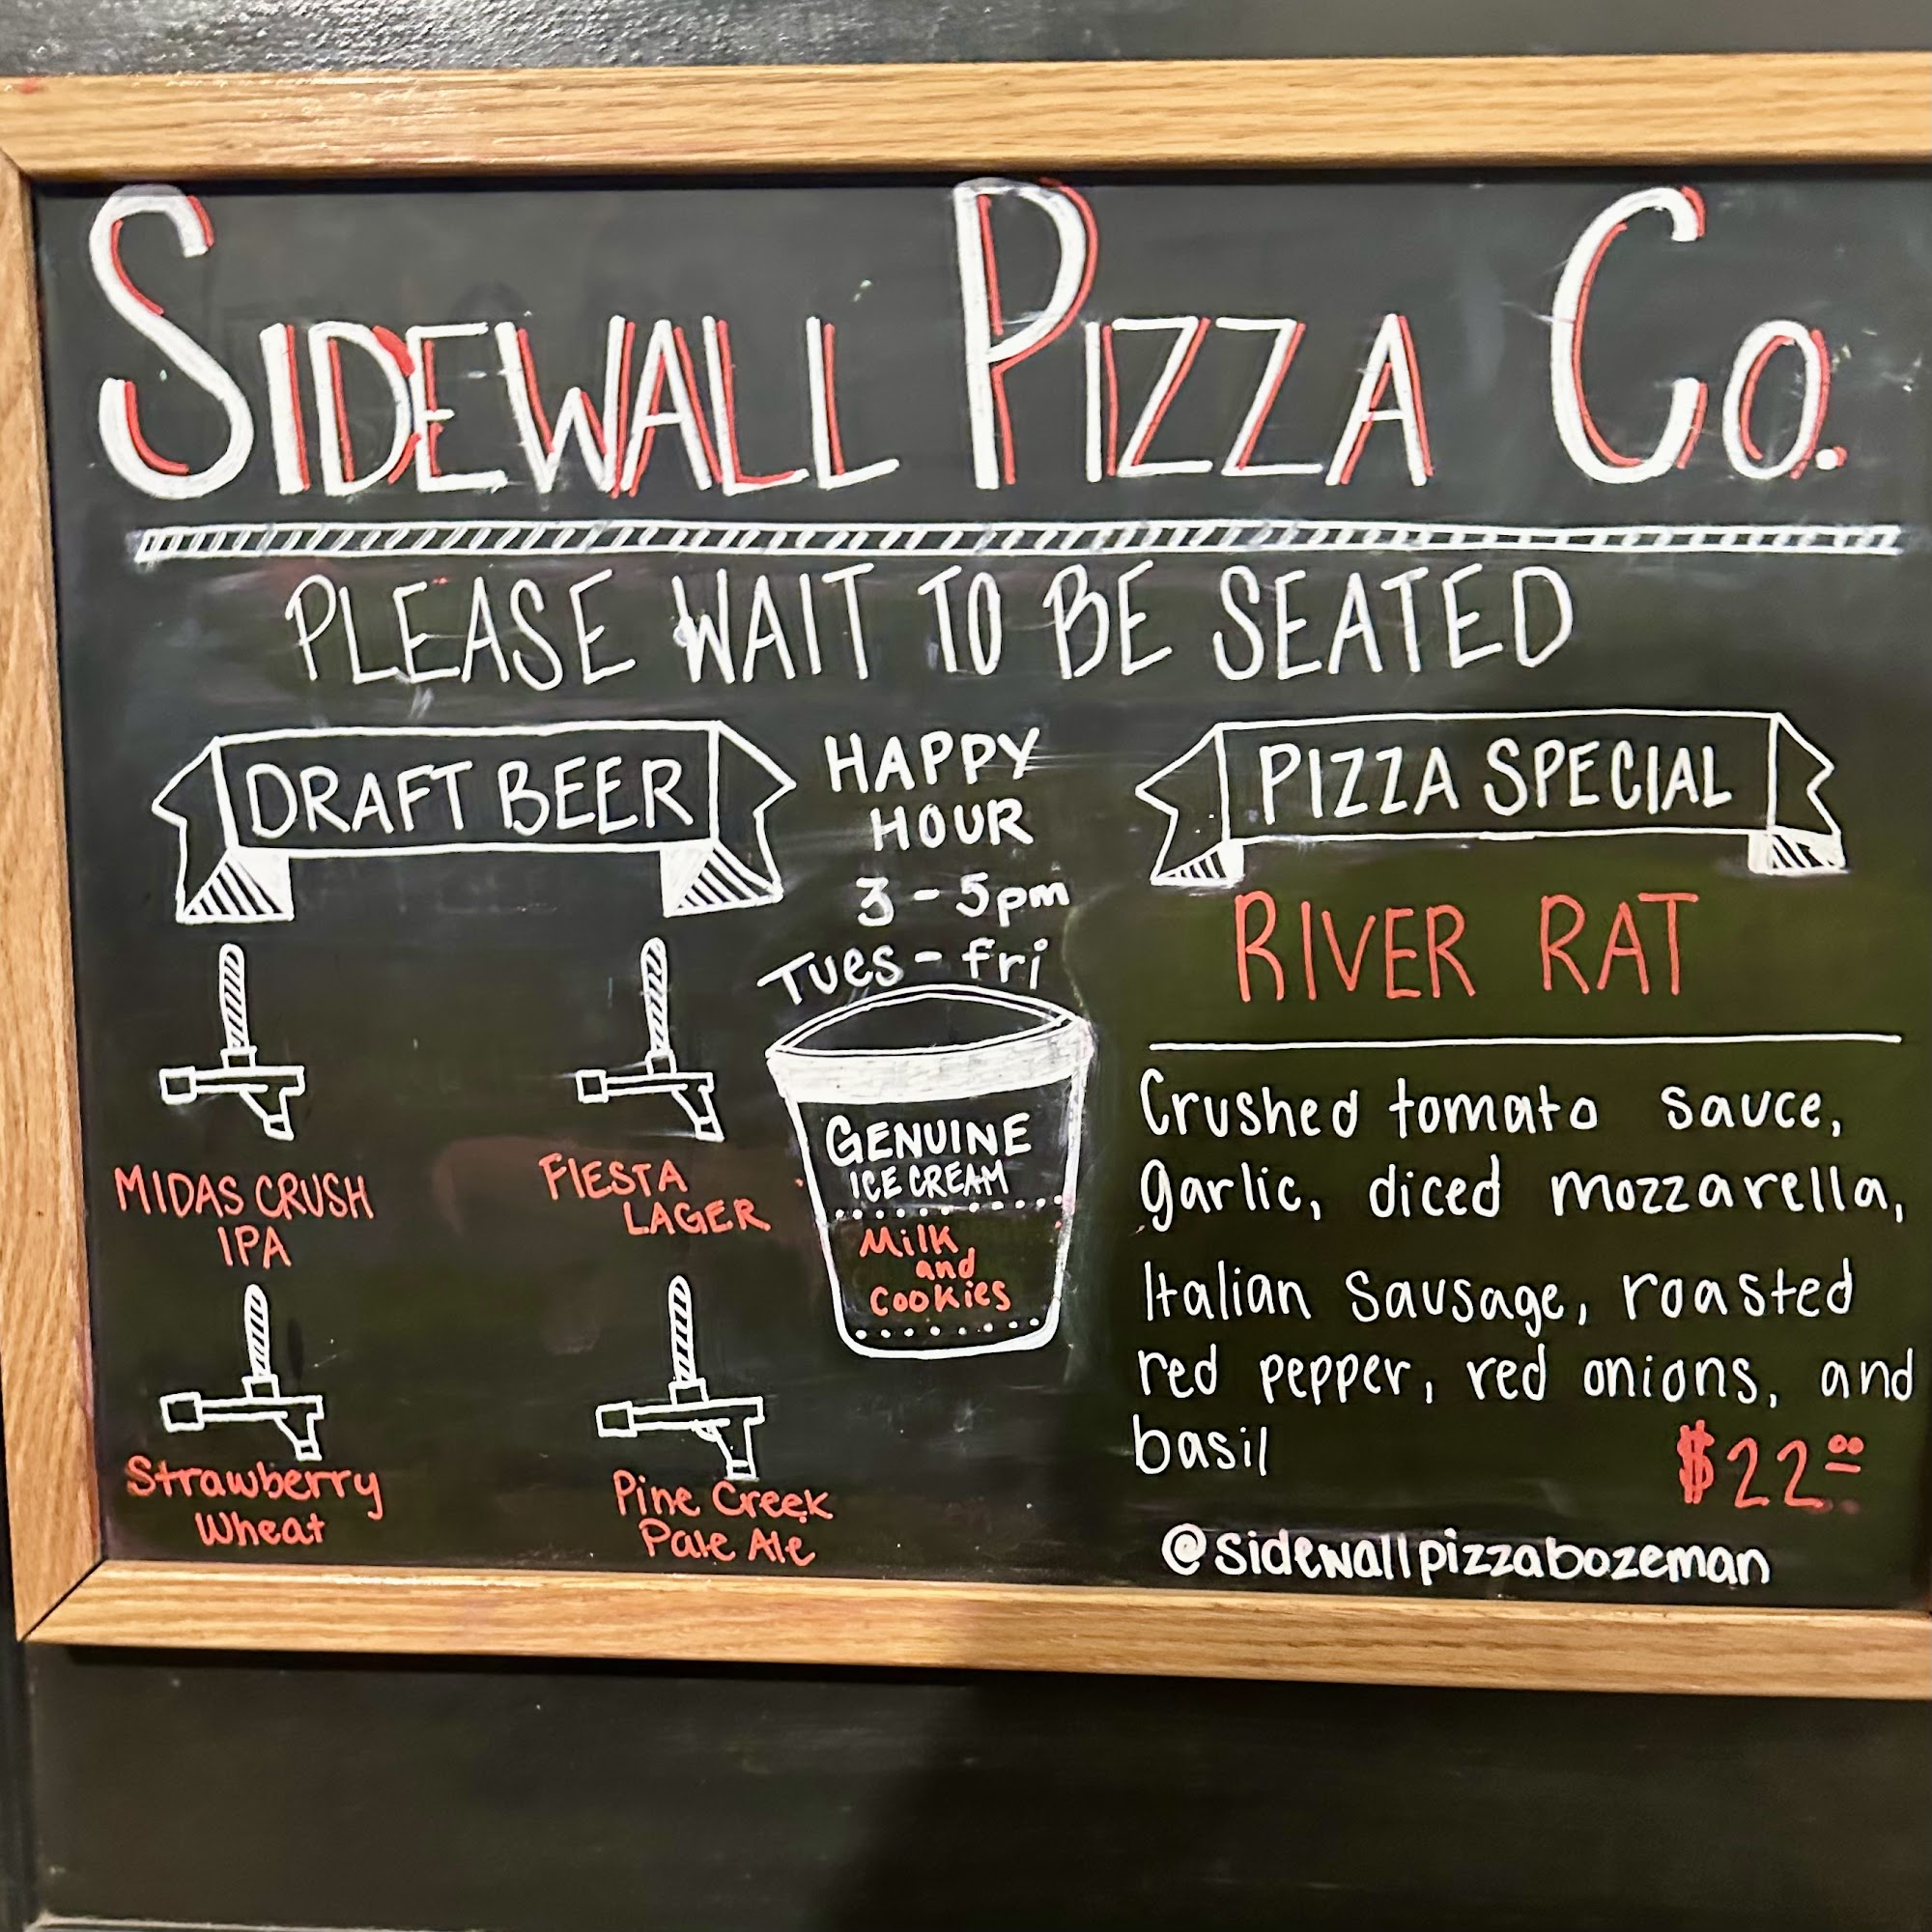 SIDEWALL PIZZA CO.
PLEASE WAIT TO BE SEATED
DRAFT BEER
MIDAS CRUSH
IPA
FIESTA
LAGER
Strawberry
Wheat
Pine Creek
Pale Ale
HAPPY
HOUR
3-5pm
Tues-fri
GENUINE
ICE CREAM
Milk
and
Cookies
PIZZA SPECIAL
RIVER RAT
Crushed tomato sauce,
garlic, diced mozzarella,
Italian Sausage, roasted
red pepper, red onions, and
basil
$22.00
@sidewallpizzabozeman